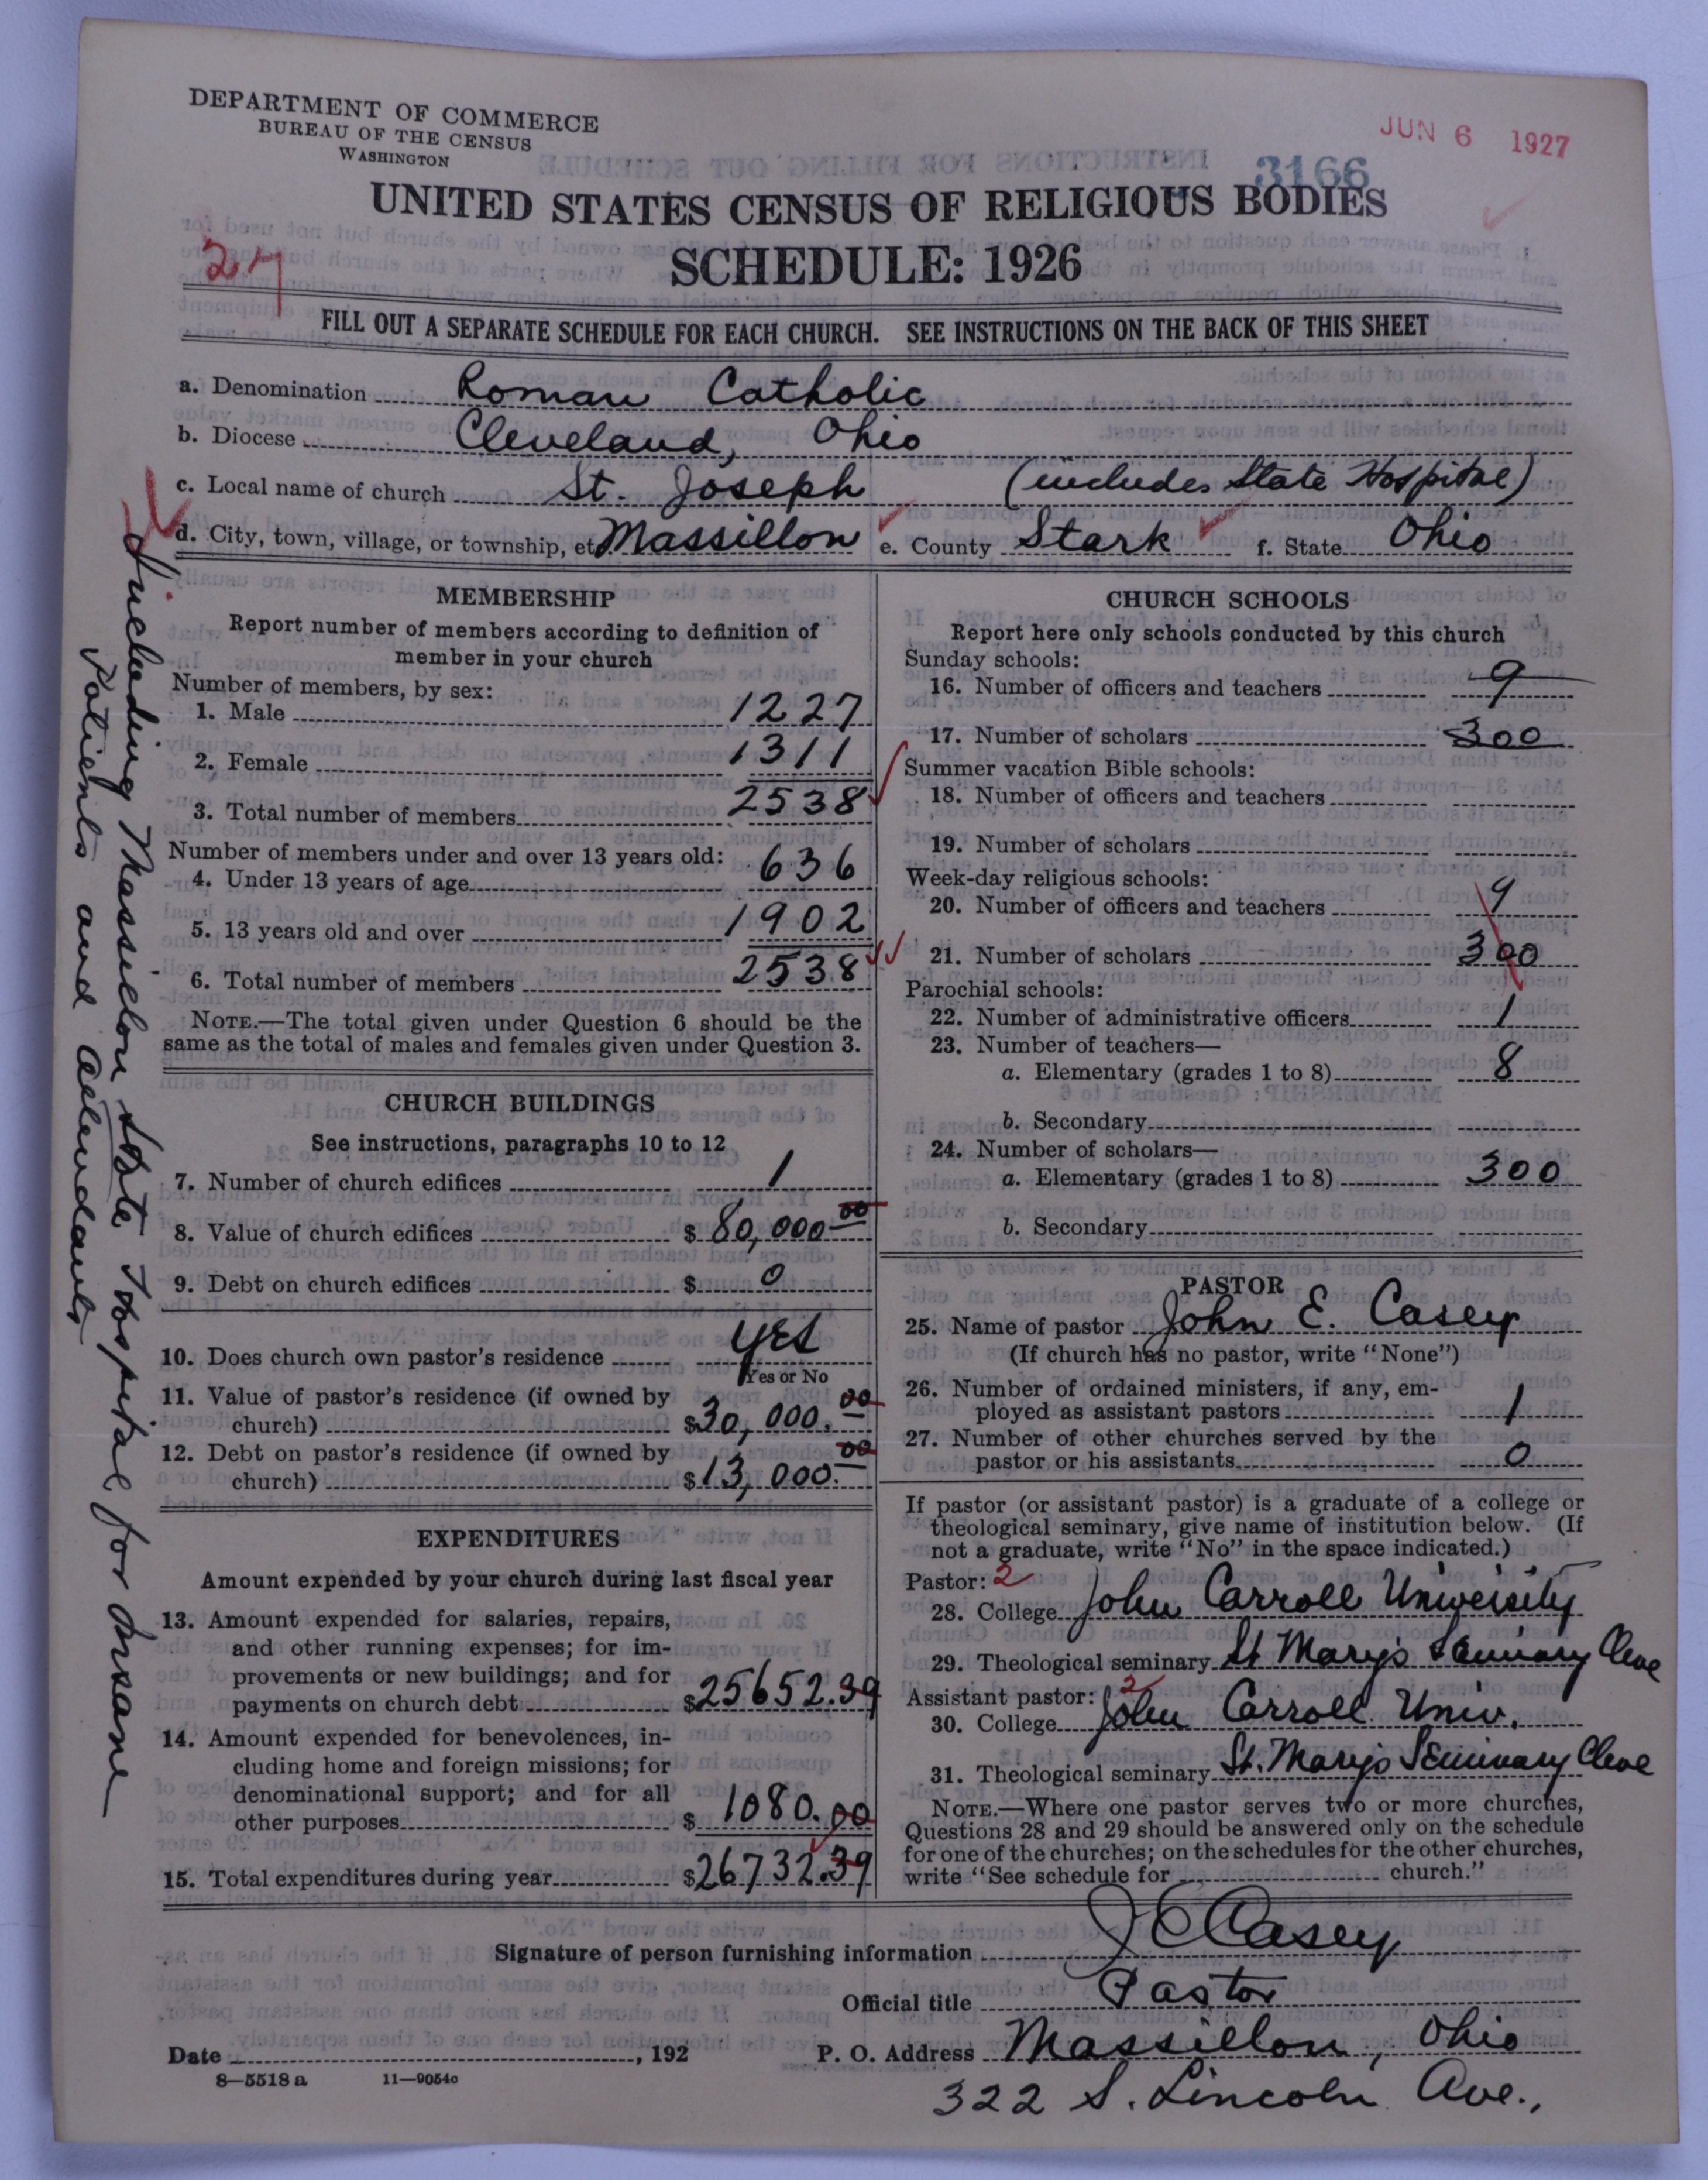 DEPARTMENT OF COMMERCE
BUREAU OF THE CENSUS
WASHINGTON
JUN 6 1927
3166
UNITED STATES CENSUS OF RELIGIOUS BODIES
SCHEDULE: 1926
27
FILL OUT A SEPARATE SCHEDULE FOR EACH CHURCH. SEE INSTRUCTIONS ON THE BACK OF THIS SHEET
a. Denomination Roman Catholic
b. Diocese Cleveland, Ohio
c. Local name of church St. Joseph (includes State Hospital)
d. City, town, village, or township, etc Massillon e. County Stark f. State Ohio
MEMBERSHIP
Report number of members according to definition of
member in your church
Number of members, by sex:
1. Male 1227
2. Female 1311
3. Total number of members 2538
Number of members under and over 13 years old:
4. Under 13 years of age 636
5. 13 years old and over 1902
6. Total number of members 2538
NOTE.—The total given under Question 6 should be the
same as the total of males and females given under Question 3.
CHURCH BUILDINGS
See instructions, paragraphs 10 to 12
7. Number of church edifices 1
8. Value of church edifices $ 80,000 00
9. Debt on church edifices $ 0
10. Does church own pastor's residence yes
Yes or No
11. Value of pastor's residence (if owned by
church) $30,000.00
12. Debt on pastor's residence (if owned by
church) $13,000.00
EXPENDITURES
Amount expended by your church during last fiscal year
13. Amount expended for salaries, repairs,
and other running expenses; for im-
provements or new buildings; and for
payments on church debt $25652.39
14. Amount expended for benevolences, in-
cluding home and foreign missions; for
denominational support; and for all
other purposes $ 1080.00
15. Total expenditures during year $26732.39
Including Massillon State Hospital for Insane
Patients and Attendants
CHURCH SCHOOLS
Report here only schools conducted by this church
Sunday schools:
16. Number of officers and teachers 9
17. Number of scholars 300
Summer vacation Bible schools:
18. Number of officers and teachers
19. Number of scholars
Week-day religious schools:
20. Number of officers and teachers 9
21. Number of scholars 300
Parochial schools:
22. Number of administrative officers 1
23. Number of teachers—
a. Elementary (grades 1 to 8) 8
b. Secondary
24. Number of scholars—
a. Elementary (grades 1 to 8) 300
b. Secondary
PASTOR
25. Name of pastor John E. Casey
(If church has no pastor, write "None")
26. Number of ordained ministers, if any, em-
ployed as assistant pastors 1
27. Number of other churches served by the
pastor or his assistants 0
If pastor (or assistant pastor) is a graduate of a college or
theological seminary, give name of institution below. (If
not a graduate, write "No" in the space indicated.)
Pastor: 2
28. College John Carroll University
29. Theological seminary St Mary's Seminary Cleve
Assistant pastor: 2
30. College John Carroll Univ.
31. Theological seminary St. Mary's Seminary Cleve
NOTE.—Where one pastor serves two or more churches,
Questions 28 and 29 should be answered only on the schedule
for one of the churches; on the schedules for the other churches,
write "See schedule for church."
Signature of person furnishing information J E Casey
Official title Pastor
Date , 192 P. O. Address Massillon, Ohio
8—5518 a 11—9054c
322 S. Lincoln Ave.,